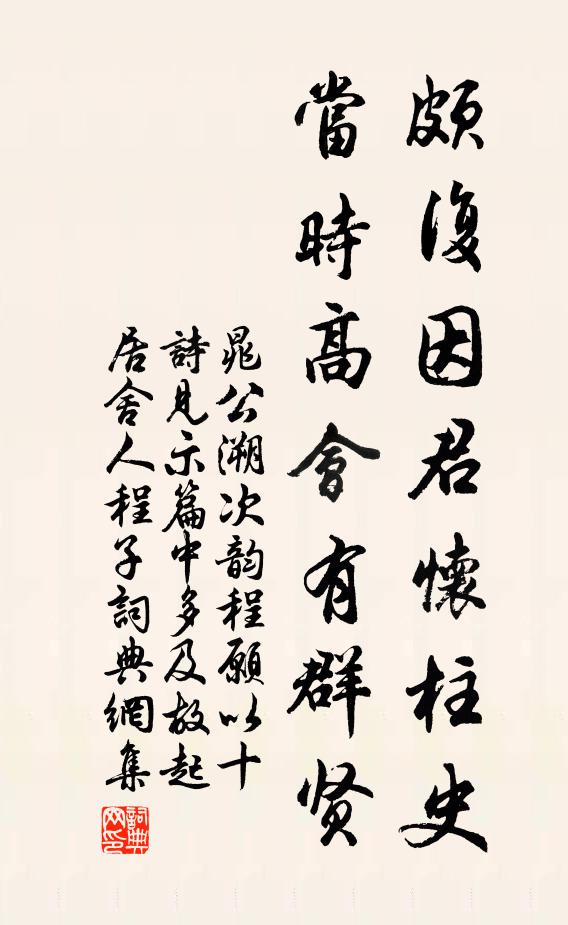 頗復因君懷柱史
當時高會有群贤
晁公溯次韵程願以十
詩見示篇中多及故起
居舍人程子詞典網集
詞典网印